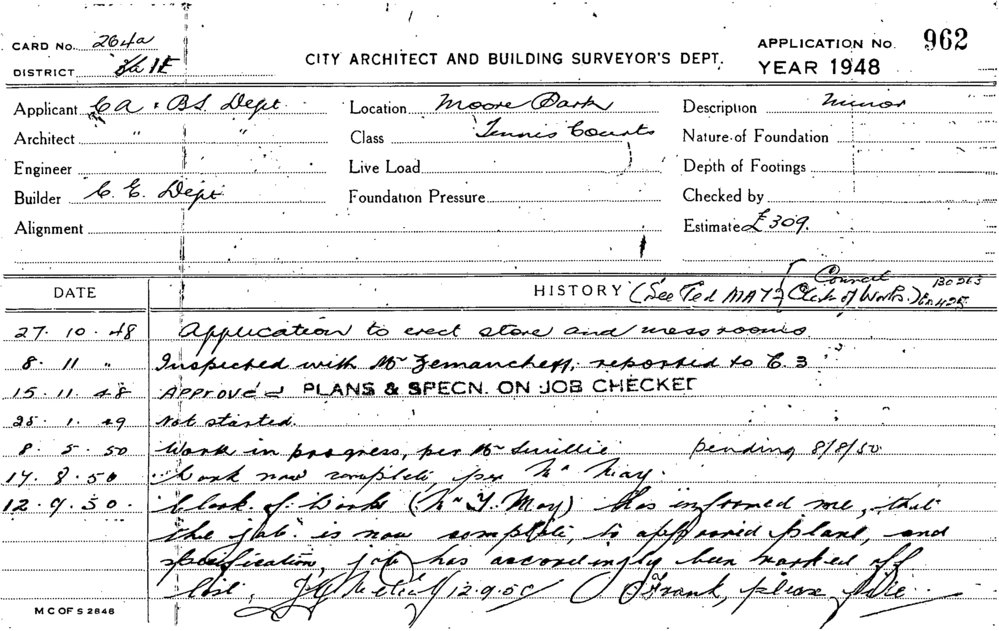 CARD No. 264a
DISTRICT 1E
CITY ARCHITECT AND BUILDING SURVEYOR'S DEPT.
APPLICATION No. 962
YEAR 1948
Applicant C A & B S. Dept.
Architect " "
Engineer
Builder C. E. Dept
Alignment
Location Moore Park
Class Tennis Courts
Live Load
Foundation Pressure
Description Minor
Nature of Foundation
Depth of Footings
Checked by
Estimate £309.
DATE HISTORY (See Ted MAY Council Clerk of Works.)
27. 10. 48 Application to erect store and mess rooms
8. 11 " Inspected with Mr Zemancheff. reported to C. 3
15. 11. 48 APPROVED PLANS & SPECN. ON JOB CHECKED
25. 1. 49 Not started.
8. 5. 50 Work in progress, per Mr Smillie pending 8/8/50
17. 8. 50 Work now complete, per Mr May.
12. 9. 50. Clerk of Works (Mr T. May) has informed me, that
the job is now complete, to approved plans, and
specification, job has accordingly been marked off
list, 12.9.50 Frank, please
M C OF S 2848